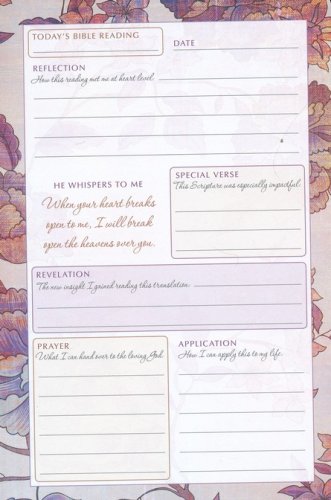 TODAY'S BIBLE READING
DATE
REFLECTION
How this reading met me at heart level.
HE WHISPERS TO ME
When your heart breaks
open to me, I will break
open the heavens over you.
SPECIAL VERSE
This Scripture was especially impactful.
REVELATION
The new insight I gained reading this translation.
PRAYER
What I can hand over to the loving God.
APPLICATION
How I can apply this to my life.